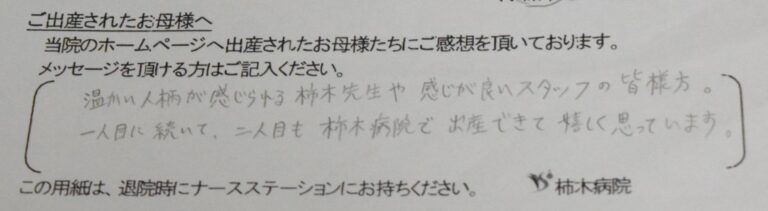 ご出産されたお母様へ
当院のホームページへ出産されたお母様たちにご感想を頂いております。
メッセージを頂ける方はご記入ください。
温かい人柄が感じられる柿木先生や感じが良いスタッフの皆様方。
一人目に続いて、二人目も柿木病院で出産できて嬉しく思っています。
この用紙は、退院時にナースステーションにお持ちください。 柿木病院